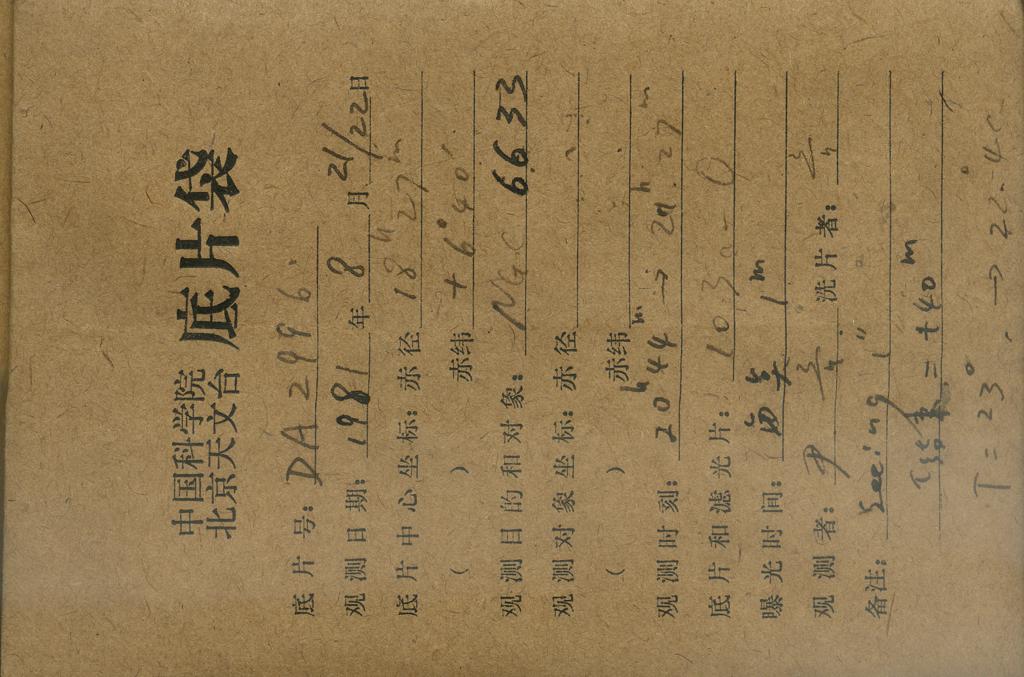 中国科学院
北京天文台 底片袋
底片号: DA2996
观测日期: 1981年8月21/22日
底片中心坐标: 赤径 18h27m
( ) 赤纬 +6°40′
观测目的和对象: NGC 6633
观测对象坐标: 赤径
( ) 赤纬
观测时刻: 20h44m → 20h27m
底片和滤光片: 103a-O
曝光时间: 1m
观测者: 尹 洗片者:
备注: Seeing 1″
= +40m
T = 23° → 22.°4C